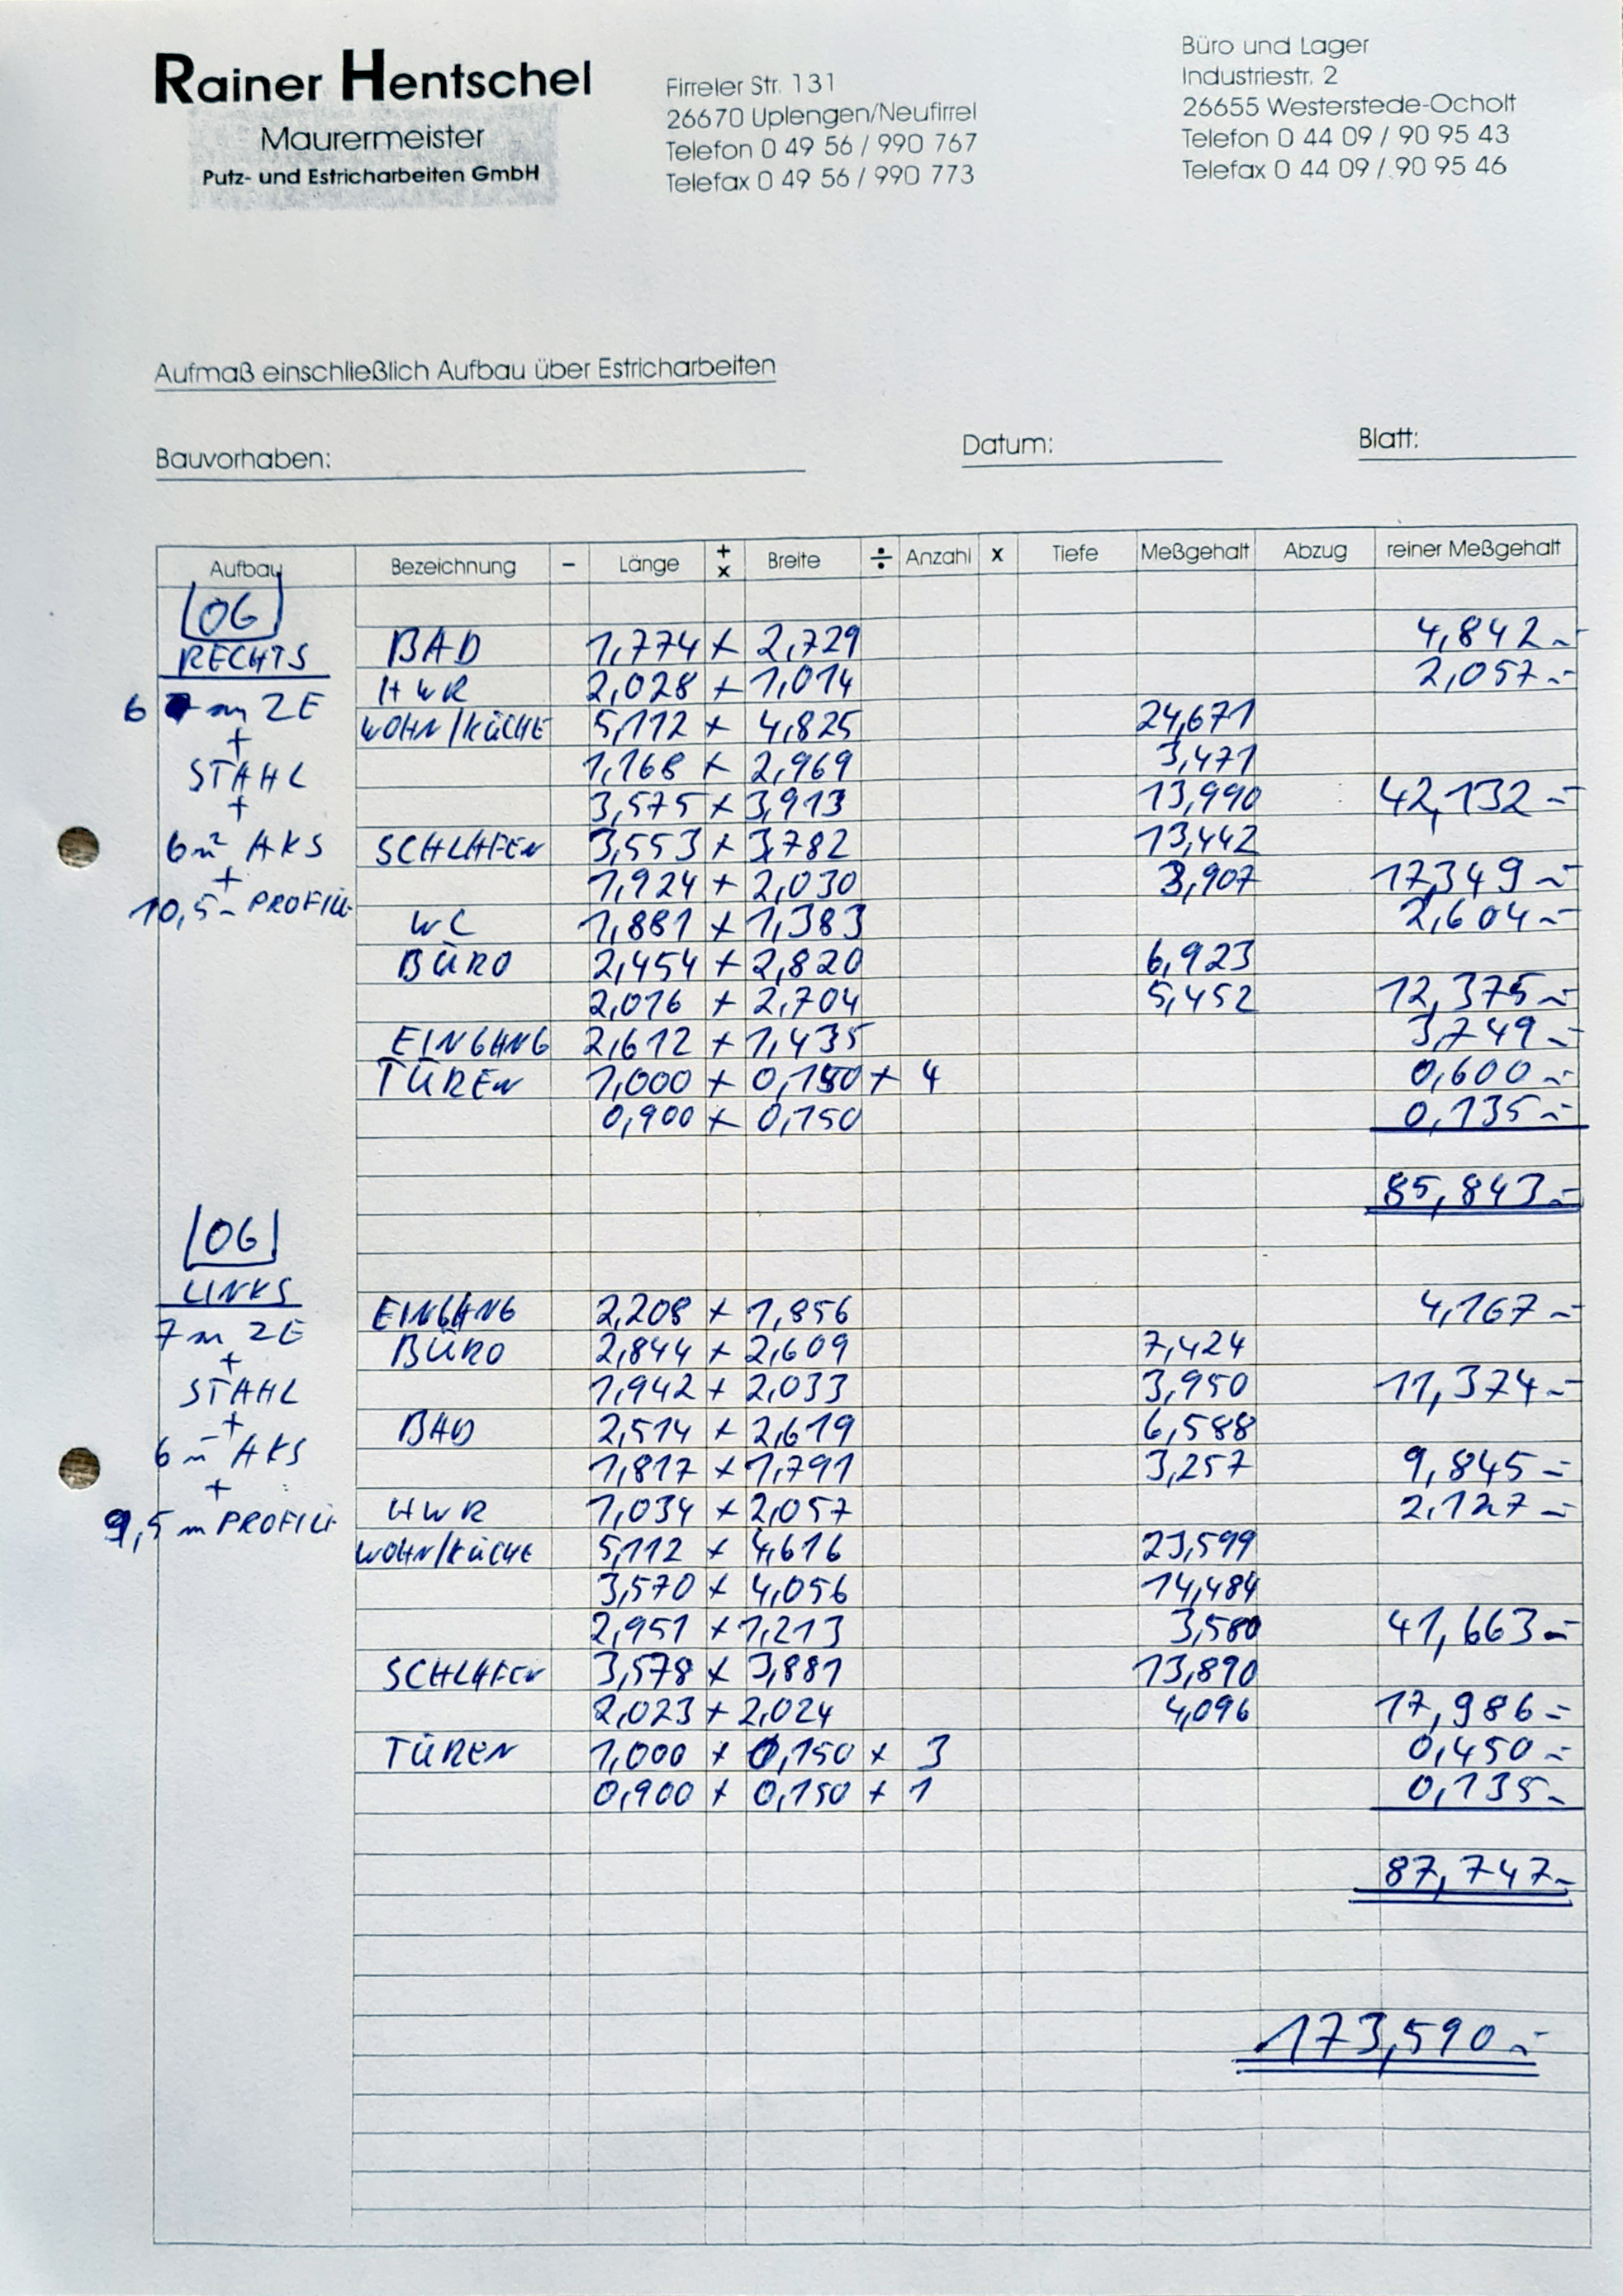 Rainer Hentschel
Maurermeister
Putz- und Estricharbeiten GmbH
Firreler Str. 131
26670 Uplengen/Neufirrel
Telefon 0 49 56 / 990 767
Telefax 0 49 56 / 990 773
Büro und Lager
Industriestr. 2
26655 Westerstede-Ocholt
Telefon 0 44 09 / 90 95 43
Telefax 0 44 09 / 90 95 46
Aufmaß einschließlich Aufbau über Estricharbeiten
Bauvorhaben: Datum: Blatt:
Aufbau Bezeichnung - Länge + x Breite ÷ Anzahl x Tiefe Meßgehalt Abzug reiner Meßgehalt
OG
RECHTS
6 m ZE
+
STAHL
+
6 m² AKS
+
10,5 m PROFILE
BAD 1,774 x 2,729 4,842
HWR 2,028 x 1,014 2,057
WOHN/KÜCHE 5,112 x 4,825 24,671
1,168 x 2,969 3,471
3,575 x 3,913 13,990 42,132
SCHLAFEN 3,553 x 3,782 13,442
1,924 x 2,030 3,907 17,349
WC 1,881 x 1,383 2,604
BÜRO 2,454 x 2,820 6,923
2,016 x 2,704 5,452 12,375
EINGANG 2,612 x 1,435 3,749
TÜREN 1,000 x 0,150 x 4 0,600
0,900 x 0,150 0,135
85,843
OG
LINKS
7 m ZE
+
STAHL
+
6 m AKS
+
9,5 m PROFILE
EINGANG 2,208 x 1,856 4,167
BÜRO 2,844 x 2,609 7,424
1,942 x 2,033 3,950 11,374
BAD 2,514 x 2,619 6,588
1,817 x 1,791 3,257 9,845
HWR 1,034 x 2,057 2,127
WOHN/KÜCHE 5,112 x 4,616 23,599
3,570 x 4,056 14,484
2,951 x 1,213 3,580 41,663
SCHLAFEN 3,578 x 3,881 13,890
2,023 x 2,024 4,096 17,986
TÜREN 1,000 x 0,150 x 3 0,450
0,900 x 0,150 x 1 0,135
87,747
173,590